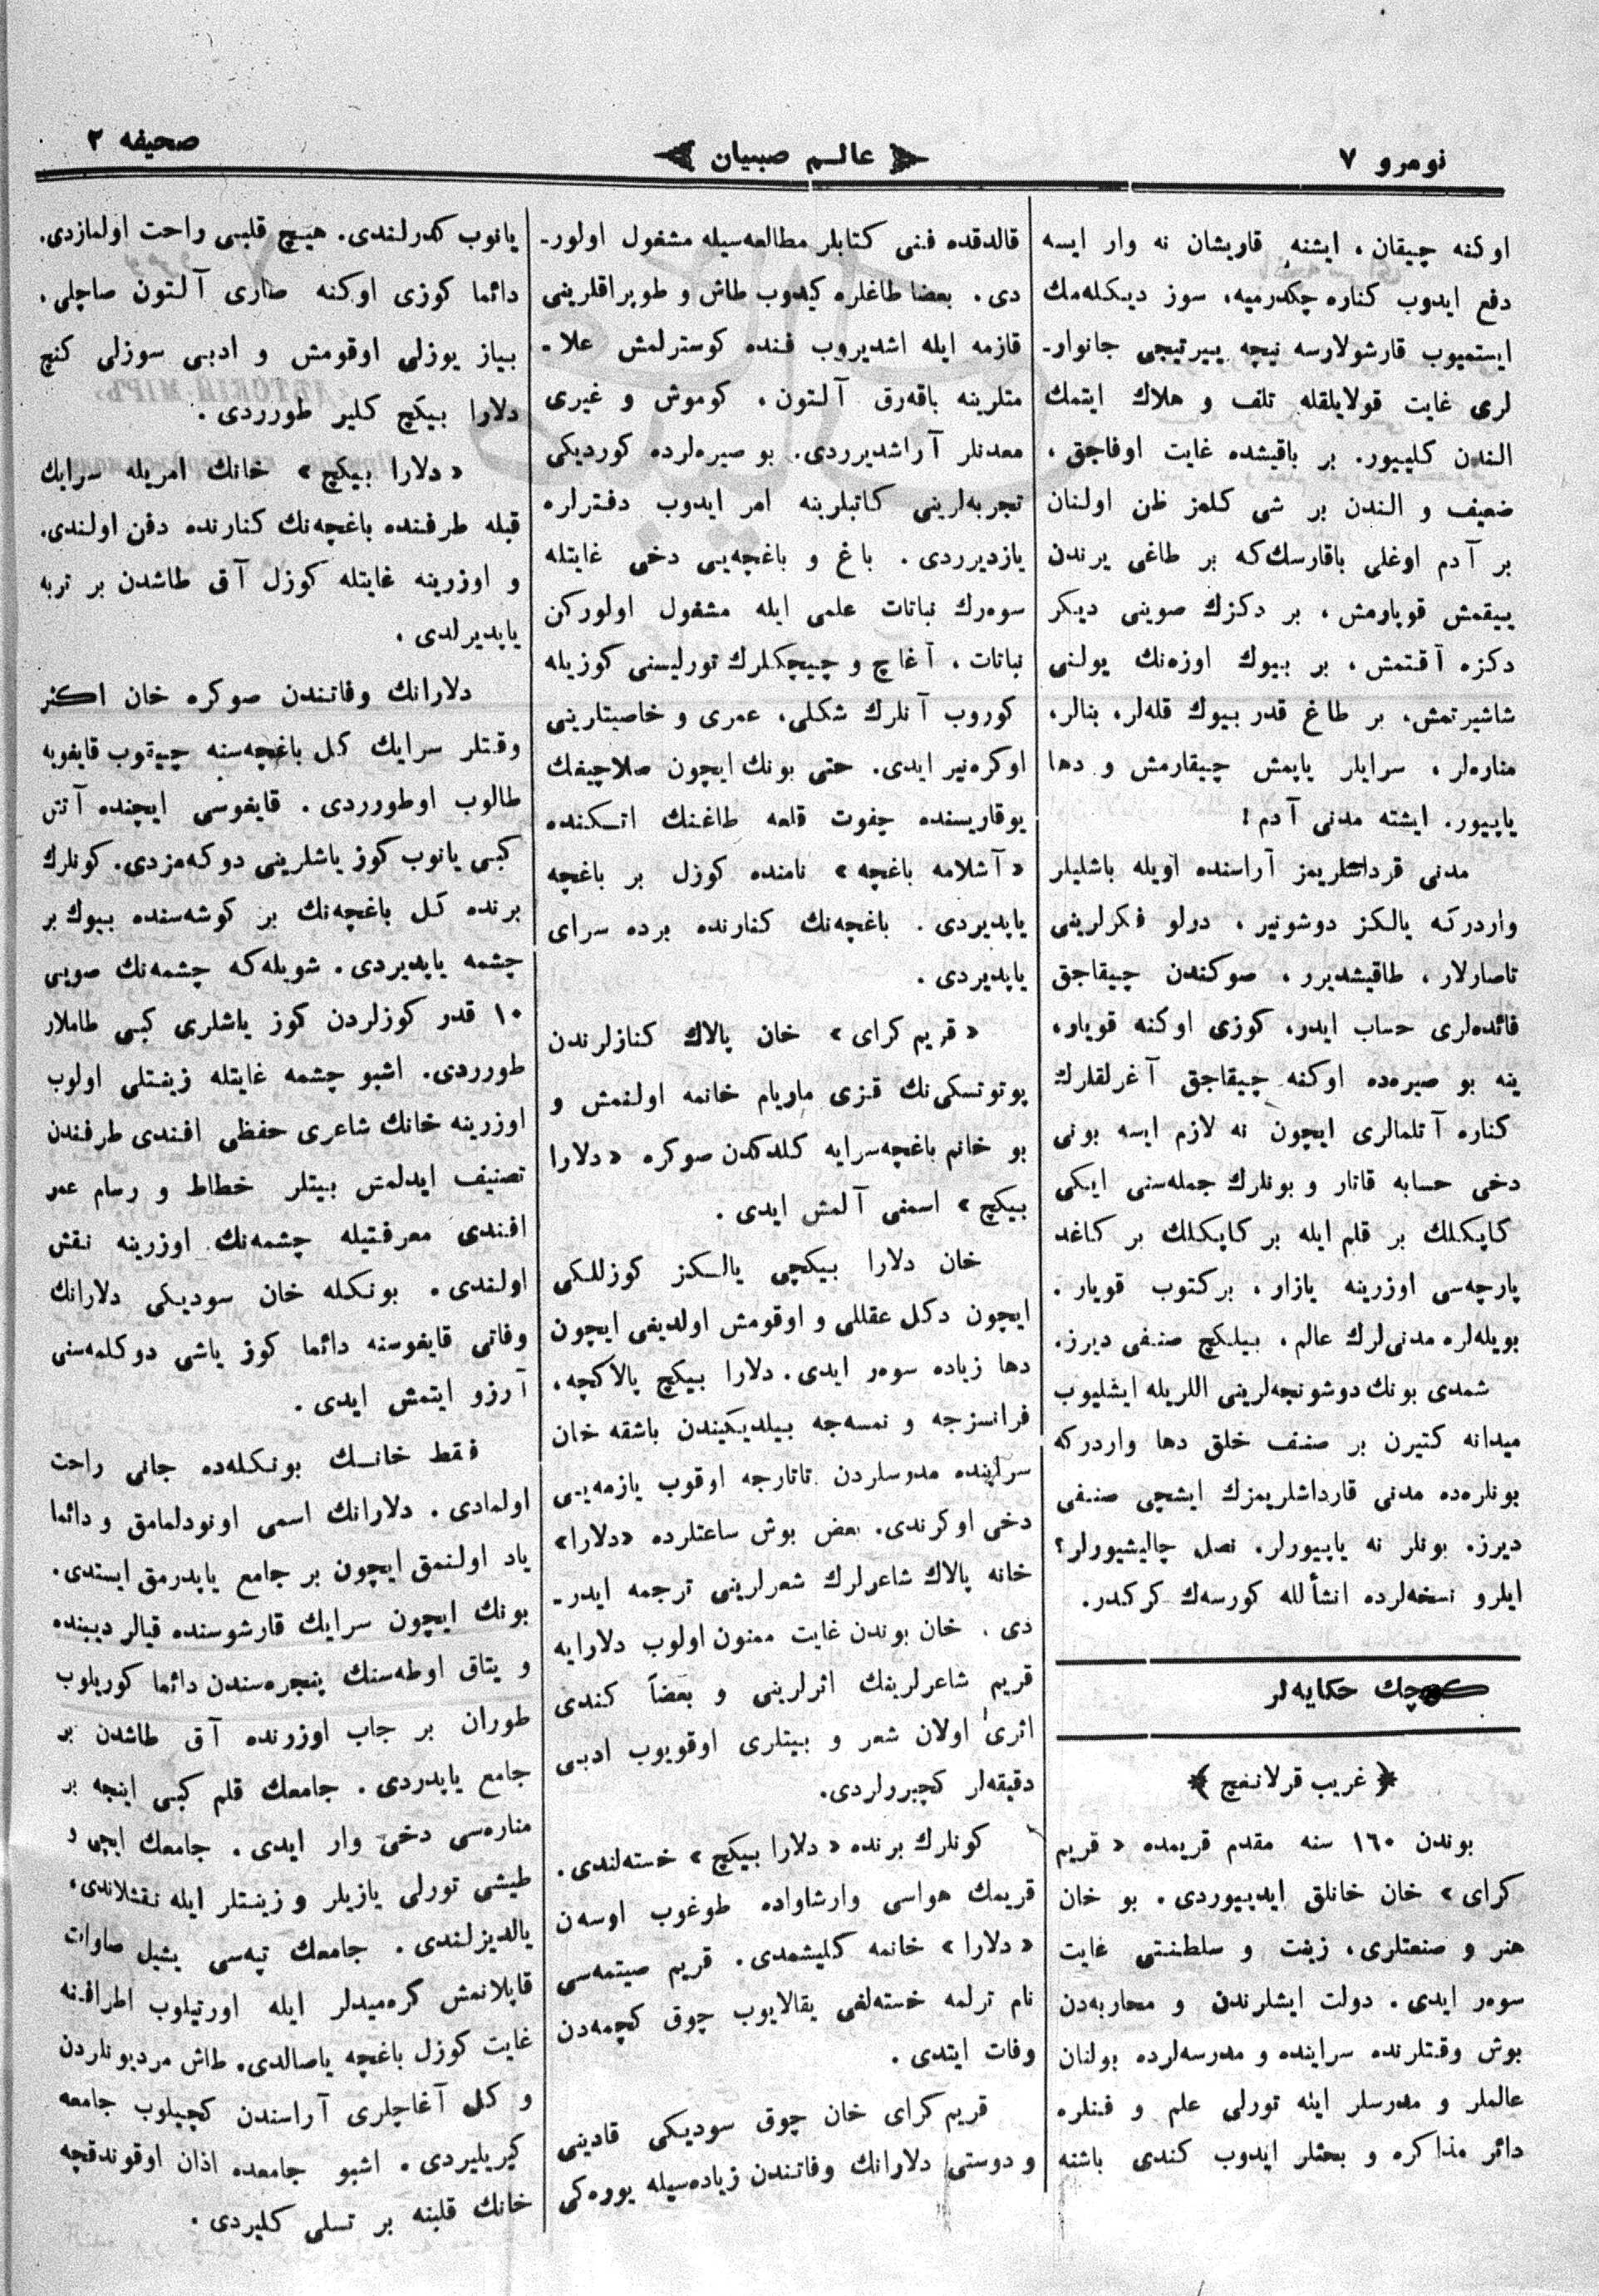 نومرو ٧
عالم صبيان
صحيفه ٢
اوكنه چيقان، ايشنه قاريشان نه وار ايسه
دفع ايدوب كناره چكدرميه، سوز ديكله‌مك
ايستميوب قارشولارسه نيچه ييرتيجى جانوار-
لرى غايت قولايلقله تلف و هلاك ايتمك
الندن كلييور. بر باقيشده غايت اوفاجق،
ضعيف و الندن بر شى كلمز ظن اولنان
بر آدم اوغلى باقارسك‌كه بر طاغى يرندن
ييقمش قوپارمش، بر دكزك صوينى ديكر
دكزه آقتمش، بر بيوك اوزه‌نك يولنى
شاشيرتمش، بر طاغ قدر بيوك قله‌لر، بنالر،
مناره‌لر، سرايلر ياپمش چيقارمش و دها
ياپييور. ايشته مدنى آدم!
مدنى قرداشلريمز آراسنده اويله باشليلر
واردركه يالكز دوشونير، درلو فكرلرينى
تاصارلار، طاقيشديرر، صوكندن چيقاجق
فائده‌لرى حساب ايدر، كوزى اوكنه قويار،
ينه بو صيره‌ده اوكنه چيقاجق آغرلقلرك
كناره آتلمالرى ايچون نه لازم ايسه بونى
دخى حسابه قاتار و بونلرك جمله‌سنى ايكى
كاپكلك بر قلم ايله بر كاپكلك بر كاغد
پارچه‌سى اوزرينه يازار، بر كتوب قويار.
بويله‌لره مدنى‌لرك عالم، بيليكچ صنفى ديرز.
شمدى بونك دوشونجه‌لرينى اللريله ايشليوب
ميدانه كتيرن بر صنف خلق دها واردركه
بونلره‌ده مدنى قارداشلريمزك ايشچى صنفى
ديرز. بونلر نه ياپييورلر، نصل چاليشيورلر؟
ايلرو نسخه‌لرده انشأ لله كورسه‌ك كركدر.
كوچك حكايه‌لر
﴿ غريب قرلانغچ ﴾
بوندن ١٦٠ سنه مقدم قريمده «قريم
كراى» خان خانلق ايدييوردى. بو خان
هنر و صنعتلرى، زينت و سلطنتى غايت
سوه‌ر ايدى. دولت ايشلرندن و محاربه‌دن
بوش وقتلرنده سراينده و مدرسه‌لرده بولنان
عالملر و مدرسلر ايله تورلى علم و فنلره
دائر مذاكره و بحثلر ايدوب كندى باشنه
قالدقده فنى كتابلر مطالعه‌سيله مشغول اولور-
دى. بعضا طاغلره كيدوب طاش و طوپراقلرينى
قازمه ايله اشديروب فنده كوسترلمش علا-
متلرينه باقه‌رق آلتون، كوموش و غيرى
معدنلر آراشديرردى. بو صيره‌لرده كورديكى
تجربه‌لرينى كاتبلرينه امر ايدوب دفترلره
يازديرردى. باغ و باغچه‌يى دخى غايتله
سوه‌رك نباتات علمى ايله مشغول اولوركن
نباتات، آغاچ و چيچكلرك تورليسنى كوزيله
كوروب آنلرك شكلى، عمرى و خاصيتارينى
اوكره‌نير ايدى. حتى بونك ايچون صلاچيغك
يوقاريسنده چفوت قلعه طاغنك اتكنده
«آشلامه باغچه» نامنده كوزل بر باغچه
ياپديردى. باغچه‌نك كنارنده برده سراى
ياپديردى.
«قريم كراى» خان پالاك كنازلرندن
پوتوتسكى‌نك قزى ماريام خانمه اولنمش و
بو خانم باغچه‌سرايه كلدكدن صوكره «دلارا
بيكچ» اسمنى آلمش ايدى.
خان دلارا بيكچى يالكز كوزللكى
ايچون دكل عقللى و اوقومش اولديغى ايچون
دها زياده سوه‌ر ايدى. دلارا بيكچ پالاكچه،
فرانسزجه و نمسه‌جه بيلديكيندن باشقه خان
سراينده مدرسلردن تاتارجه اوقوب يازمه‌يى
دخى اوكرندى. بعض بوش ساعتلرده «دلارا»
خانه پالاك شاعرلرك شعرلرينى ترجمه ايدر-
دى. خان بوندن غايت ممنون اولوب دلارايه
قريم شاعرلرينك اثرلرينى و بعضاً كندى
اثرى اولان شعر و بيتلرى اوقويوب ادبى
دقيقه‌لر كچيررلردى.
كونلرك برنده «دلارا بيكچ» خسته‌لندى.
قريمك هواسى وارشاواده طوغوب اوسه‌ن
«دلارا» خانمه كليشمدى. قريم صيتمه‌سى
نام ترلمه خسته‌لغى يقالايوب چوق كچمه‌دن
وفات ايتدى.
قريم كراى خان چوق سوديكى قادينى
و دوستى دلارانك وفاتندن زياده‌سيله يوره‌كى
يانوب كدرلندى. هيچ قلبى راحت اولمازدى.
دائما كوزى اوكنه صارى آلتون صاچلى،
بياز يوزلى اوقومش و ادبى سوزلى كنچ
دلارا بيكچ كلير طورردى.
«دلارا بيكچ» خانك امريله سرايك
قبله طرفنده باغچه‌نك كنارنده دفن اولندى.
و اوزرينه غايتله كوزل آق طاشدن بر تربه
ياپديرلدى.
دلارانك وفاتندن صوكره خان اكثر
وقتلر سرايك كل باغچه‌سنه چيقوب قايغويه
طالوب اوطورردى. قايغوسى ايچنده آتش
كبى يانوب كوز ياشلرينى دوكه‌مزدى. كونلرك
برنده كل باغچه‌نك بر كوشه‌سنده بيوك بر
چشمه ياپديردى. شويله‌كه چشمه‌نك صويى
١٠ قدر كوزلردن كوز ياشلرى كبى طاملار
طورردى. اشبو چشمه غايتله زينتلى اولوب
اوزرينه خانك شاعرى حفظى افندى طرفندن
تصنيف ايدلمش بيتلر خطاط و رسام عمر
افندى معرفتيله چشمه‌نك اوزرينه نقش
اولندى. بونكله خان سوديكى دلارانك
وفاتى قايغوسنه دائما كوز ياشى دوكلمه‌سنى
آرزو ايتمش ايدى.
فقط خانك بونكله‌ده جانى راحت
اولمادى. دلارانك اسمى اونودلمامق و دائما
ياد اولنمق ايچون بر جامع ياپدرمق ايستدى.
بونك ايچون سرايك قارشوسنده قيالر ديبنده
و يتاق اوطه‌سنك پنجره‌سندن دائما كوريلوب
طوران بر جاب اوزرنده آق طاشدن بر
جامع ياپدردى. جامعك قلم كبى اينجه بر
مناره‌سى دخى وار ايدى. جامعك ايچى و
طيشى تورلى يازيلر و زينتلر ايله نقشلاندى،
يالديزلندى. جامعك تپه‌سى يشيل صاوات
قاپلانمش كره‌ميدلر ايله اورتيلوب اطرافنه
غايت كوزل باغچه ياصالدى. طاش مرديونلردن
و كل آغاچلرى آراسندن كچيلوب جامعه
كيريليردى. اشبو جامعده اذان اوقوندقچه
خانك قلبنه بر تسلى كليردى.